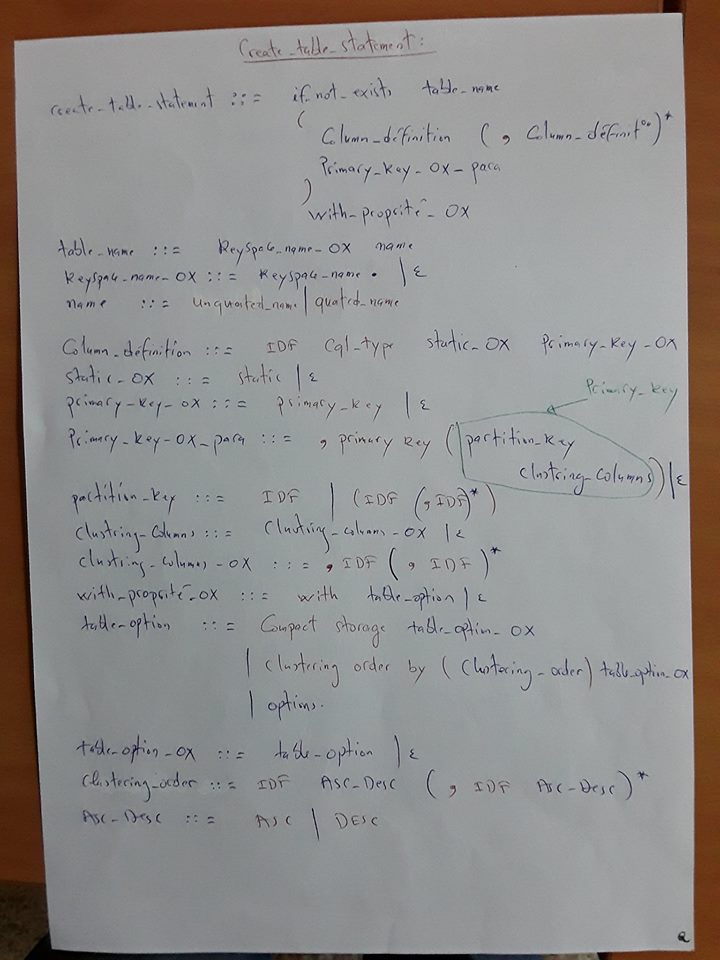 Create_table_statement:
create_table_statement ::= if_not_exists table_name
(
Column_définition ( , Column_définit°°)*
Primary_key_OX_para
)
with_proprité_OX
table_name ::= Keyspace_name_OX name
Keyspace_name_OX ::= Keyspace_name . | ε
name ::= unquoated_name | quated_name
Column_définition ::= IDF Cql_type static_OX Primary_key_OX
static_OX ::= static | ε
primary_key_ox ::= primary_key | ε
Primary_key
Primary_key_OX_para ::= , primary key ( partition_key
clustring_columns ) | ε
partition_key ::= IDF | (IDF (, IDF)*)
Clustring_Columns ::= Clustring_columns_OX | ε
clustring_columns_OX ::= , IDF ( , IDF )*
with_proprité_OX ::= with table_option | ε
table_option ::= Compact storage table_optin_OX
| clustering order by ( Clustering_order ) table_option_OX
| options.
table_option_OX ::= table_option | ε
Clustering_order ::= IDF Asc_Desc ( , IDF Asc_Desc )*
Asc_Desc ::= ASC | DESC